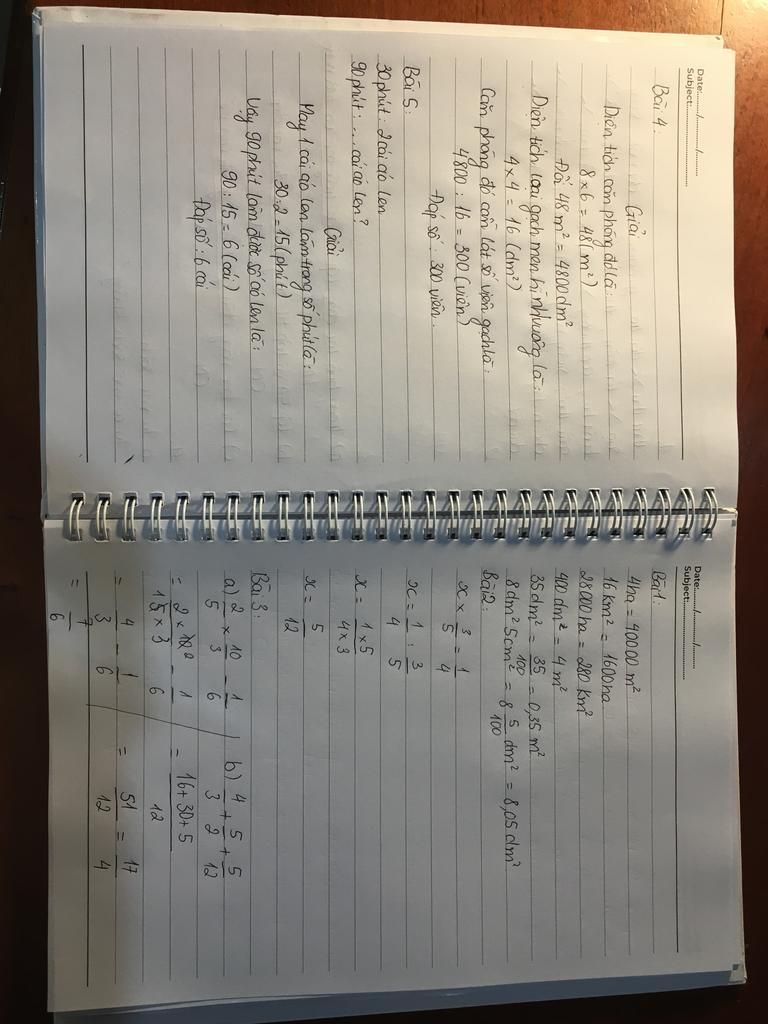 Date:....../....../......
Subject:......................
Bài 4:
Giải
Diện tích căn phòng đó là:
8 x 6 = 48 (m²)
Đổi 48 m² = 4800 dm²
Diện tích loại gạch men hình vuông là:
4 x 4 = 16 (dm²)
Căn phòng đó cần lát số viên gạch là:
4800 : 16 = 300 (viên)
Đáp số : 300 viên.
Bài 5:
30 phút : 2 cái áo len
90 phút : ... cái áo len?
Giải
May 1 cái áo len làm trong số phút là:
30 : 2 = 15 (phút)
Vậy 90 phút làm được số áo len là:
90 : 15 = 6 (cái)
Đáp số : 6 cái
Date:....../....../......
Subject:......................
Bài 1:
4ha = 40000 m²
16 km² = 1600 ha
28000 ha = 280 km²
400 dm² = 4 m²
35 dm² = 35/100 = 0,35 m²
8 dm² 5cm² = 8 5/100 dm² = 8,05 dm²
Bài 2:
x × 3/5 = 1/4
x = 1/4 : 3/5
x = 1×5/4×3
x = 5/12
Bài 3:
a) 2/5 × 10/3 - 1/6
= 4/3 - 1/6
= 7/6
b) 4/3 + 5/2 + 5/12
= 16+30+5/12
= 51/12 = 17/4